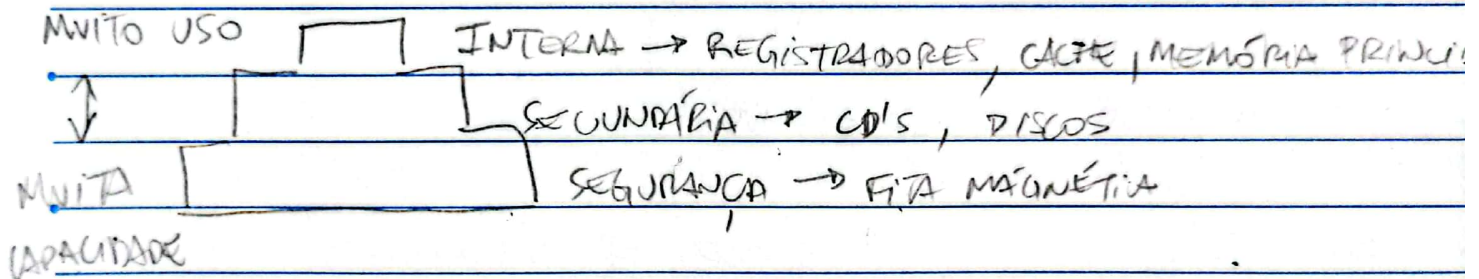 MUITO USO INTERNA → REGISTRADORES, CACHE, MEMÓRIA PRINCI
SECUNDÁRIA → CD'S, DISCOS
MUITA SEGURANÇA → FITA MAGNÉTICA
CAPACIDADE